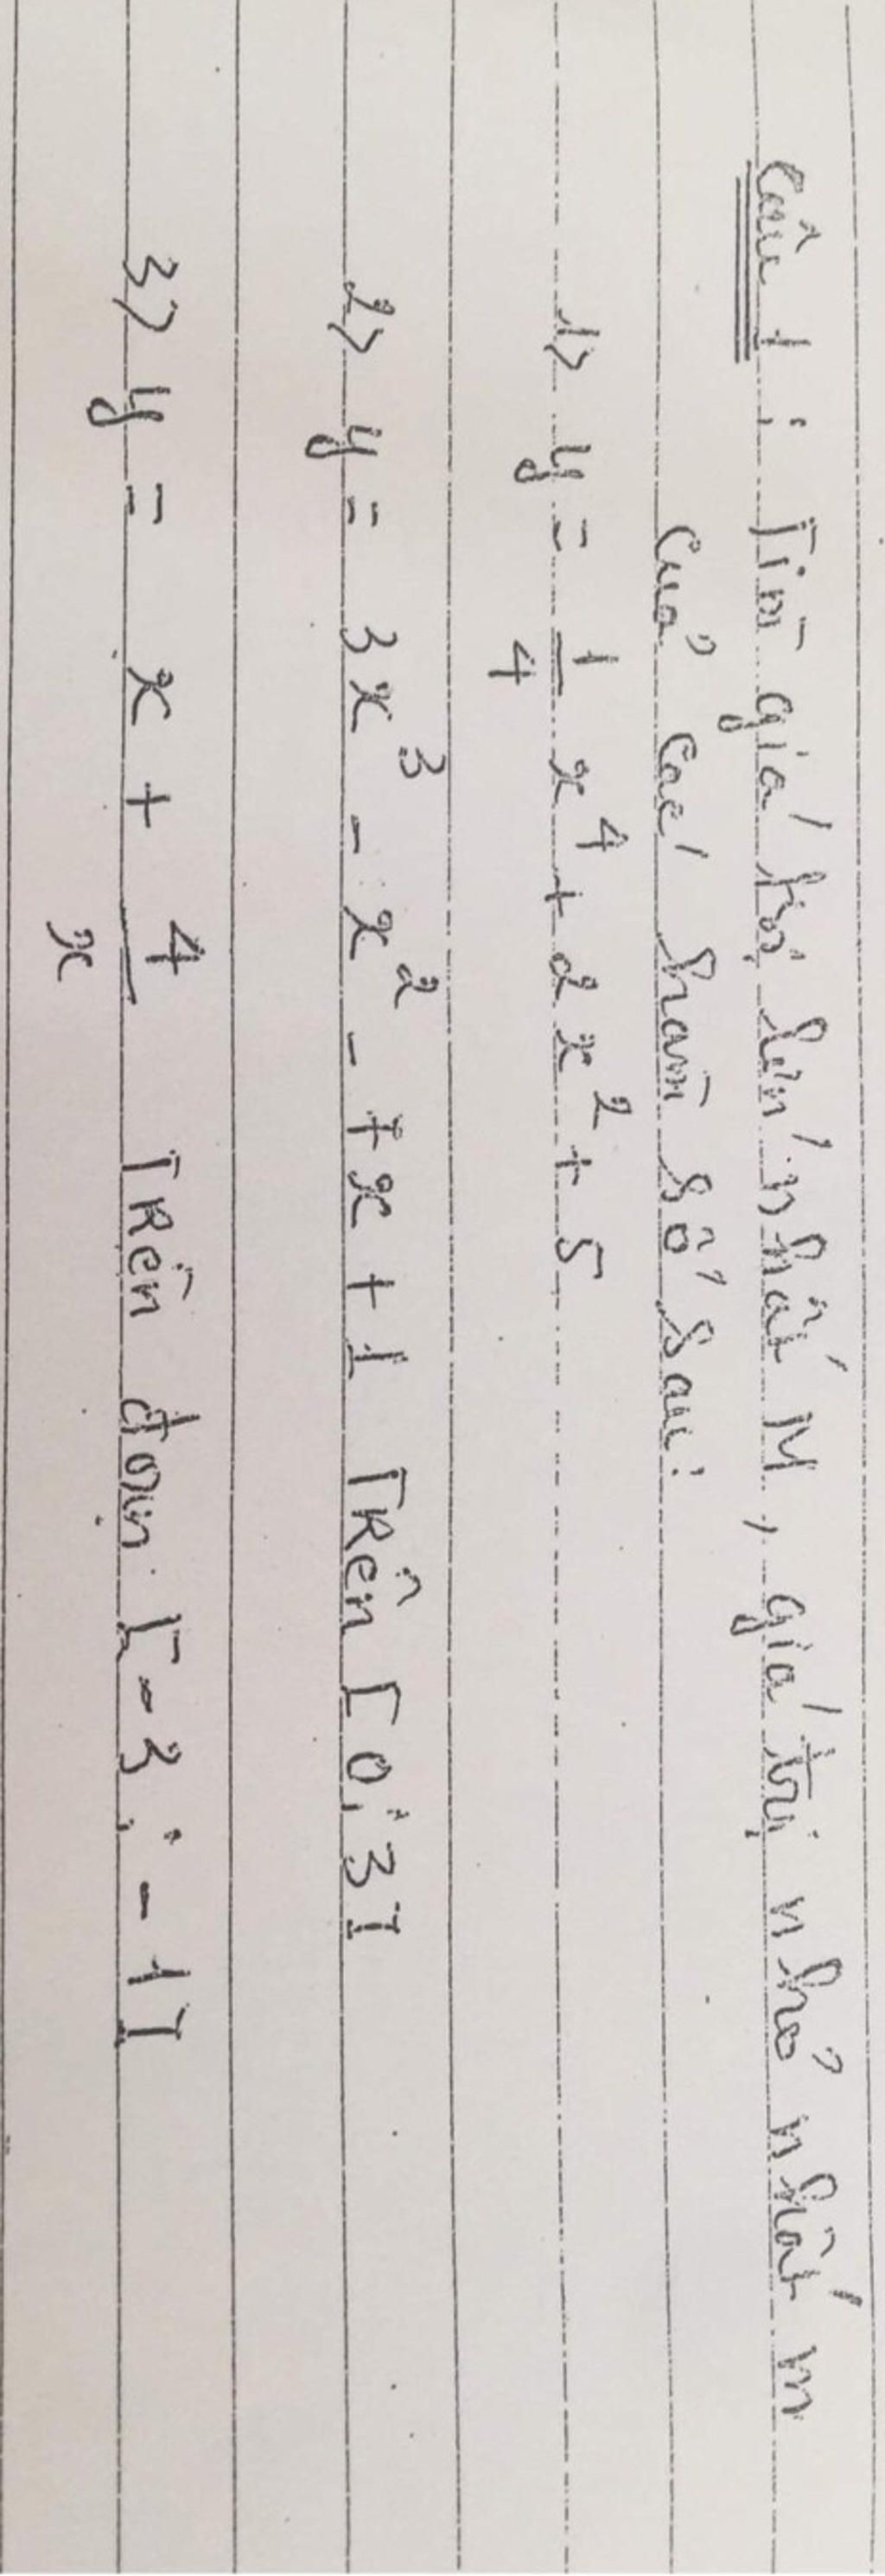 Câu 1 : Tìm giá trị lớn nhất M, giá trị nhỏ nhất m
của các hàm số sau:
1> y = 1/4 x⁴ + 2x² + 5
2> y = 3x³ - x² - 7x + 1 Trên [0; 3]
3> y = x + 4/x Trên đoạn [-3; -1]